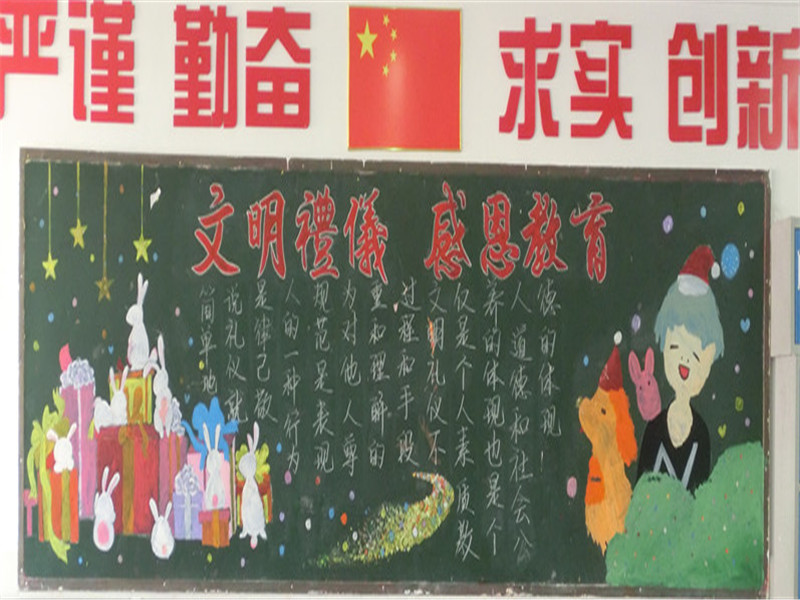 严谨 勤奋 求实 创新
文明禮儀 感恩教育
简单地
说礼仪就
是律己敬
人的一种行为
规范是表现
为对他人尊
重和理解的
过程和手段
文明礼仪不
仅是个人素质教
养的体现也是个
人道德和社会公
德的体现!
N